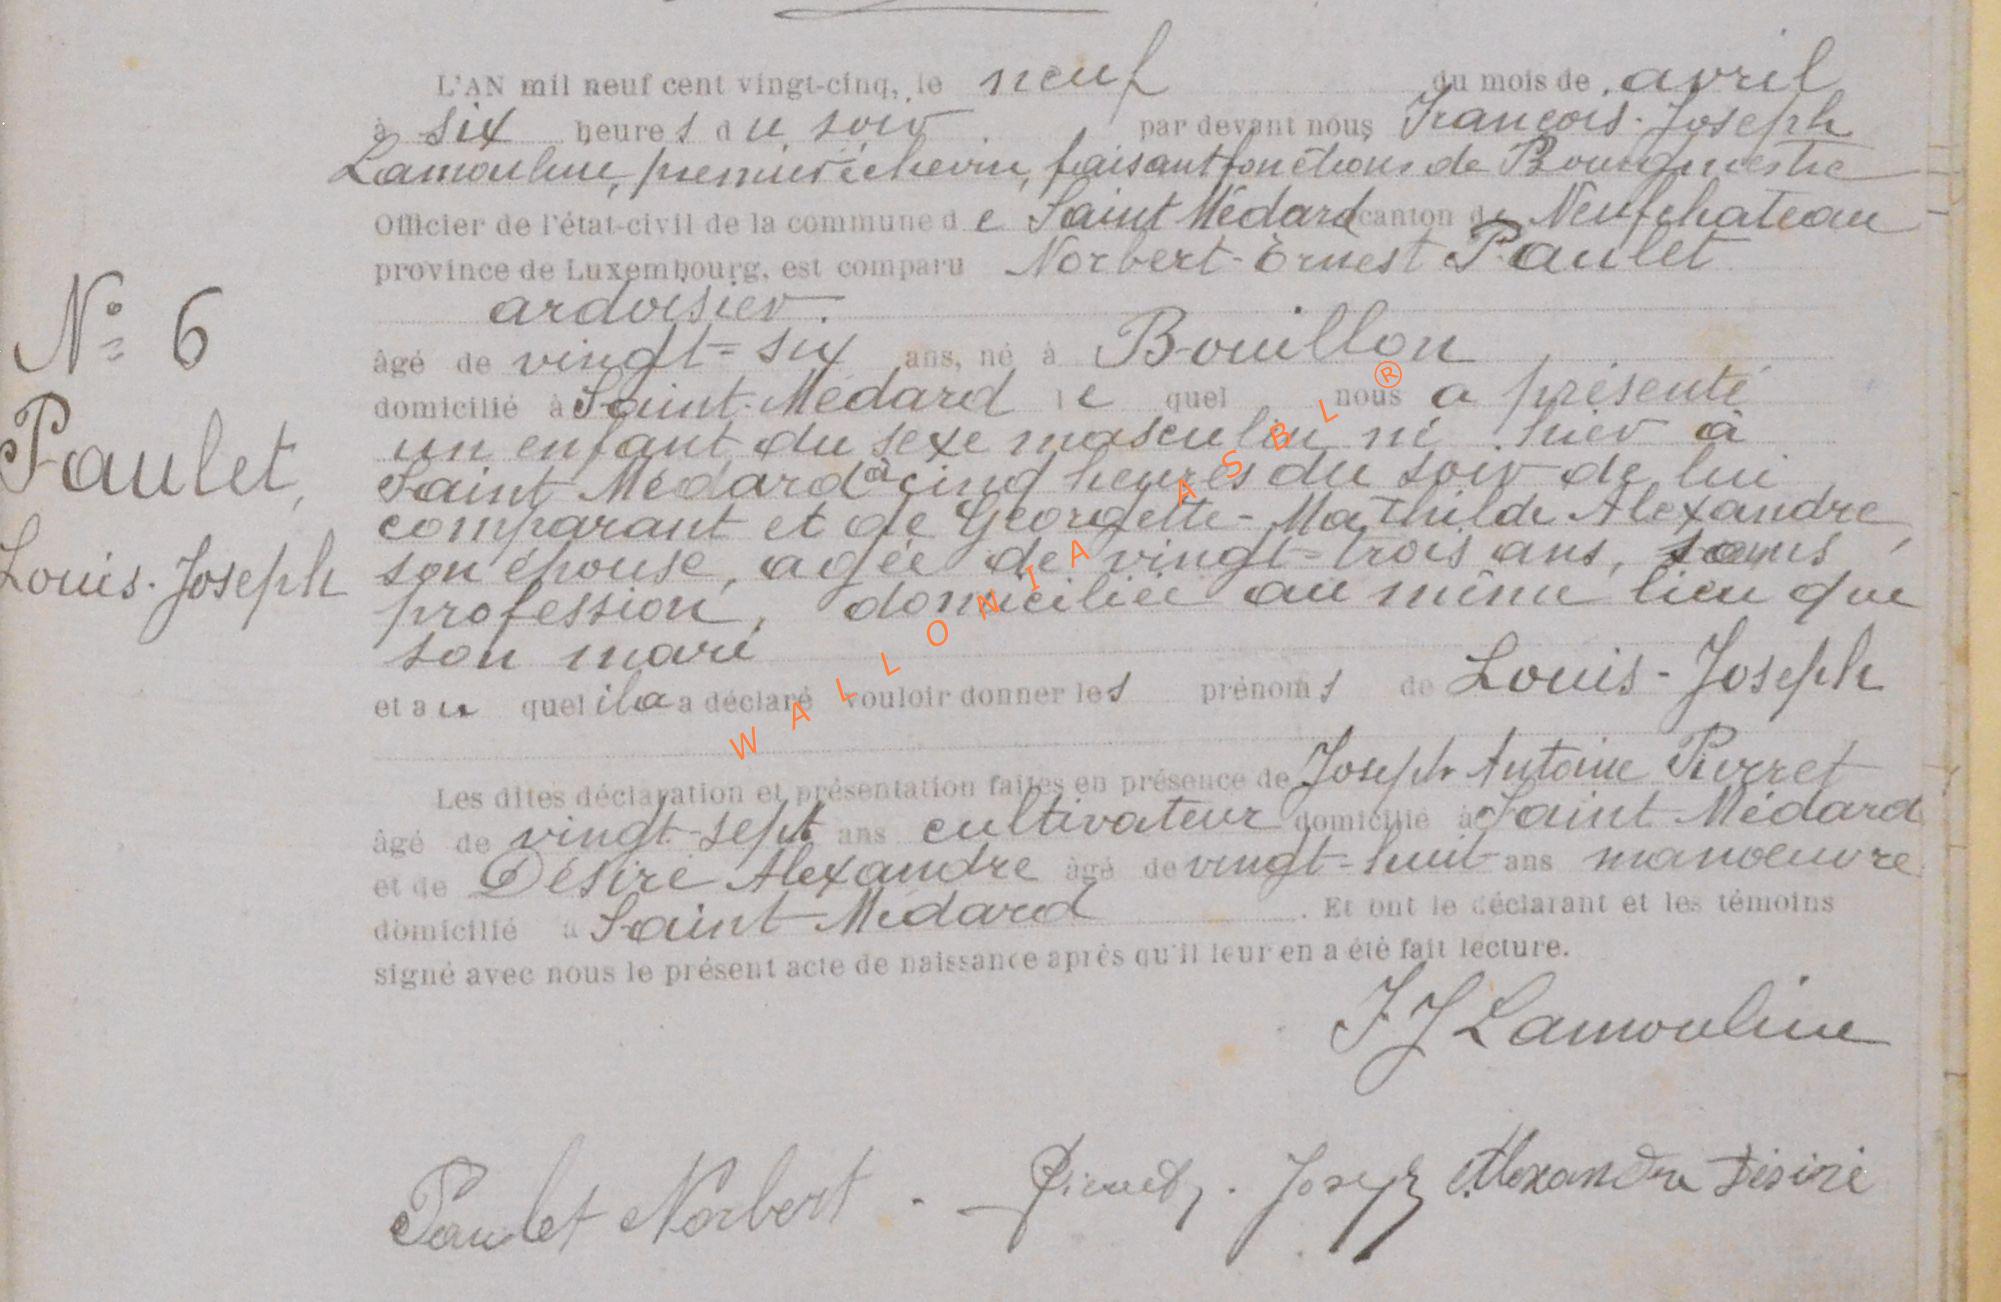 L'AN mil neuf cent vingt-cinq, le neuf du mois de avril
à six heures du soir par devant nous François-Joseph
Lamouline, premier échevin, faisant fonctions de Bourgmestre
Officier de l'état-civil de la commune de Saint Médard canton de Neufchateau
province de Luxembourg, est comparu Norbert-Ernest Paulet
ardoisier.
N° 6
âgé de vingt-six ans, né à Bouillon
domicilié à Saint-Médard lequel nous a présenté
Paulet,
un enfant du sexe masculin né hier à
Saint Médard à cinq heures du soir de lui
comparant et de Georgette-Mathilde Alexandre,
Louis-Joseph
son épouse, agée de vingt-trois ans, sans
profession, domiciliée au même lieu que
son mari
et au quel il a a déclaré vouloir donner les prénoms de Louis-Joseph
Les dites déclaration et présentation faites en présence de Joseph Antoine Pierret
âgé de vingt-sept ans cultivateur domicilié à Saint Médard
et de Désiré Alexandre âgé de vingt-huit ans manoeuvre
domicilié à Saint-Médard. Et ont le déclarant et les témoins
signé avec nous le présent acte de naissance après qu'il leur en a été fait lecture.
F J Lamouline
Paulet Norbert - Joseph Alexandre Désiré
WALLONIA ASBL ®